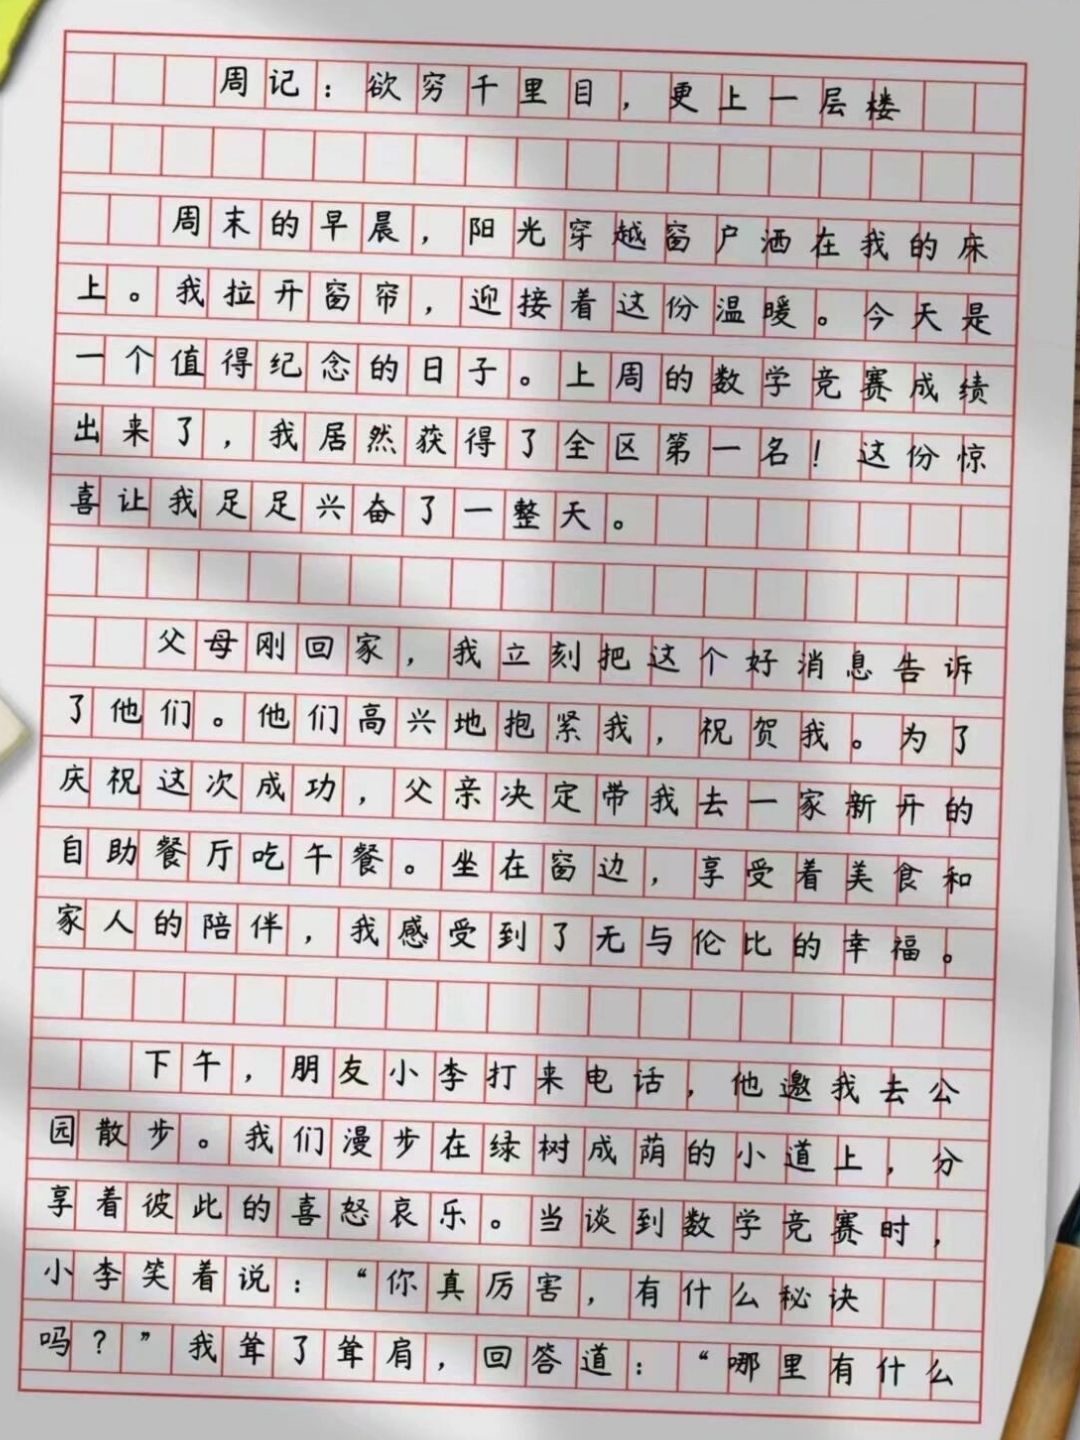 周记：欲穷千里目，更上一层楼
周末的早晨，阳光穿越窗户洒在我的床
上。我拉开窗帘，迎接着这份温暖。今天是
一个值得纪念的日子。上周的数学竞赛成绩
出来了，我居然获得了全区第一名！这份惊
喜让我足足兴奋了一整天。
父母刚回家，我立刻把这个好消息告诉
了他们。他们高兴地抱紧我，祝贺我。为了
庆祝这次成功，父亲决定带我去一家新开的
自助餐厅吃午餐。坐在窗边，享受着美食和
家人的陪伴，我感受到了无与伦比的幸福。
下午，朋友小李打来电话，他邀我去公
园散步。我们漫步在绿树成荫的小道上，分
享着彼此的喜怒哀乐。当谈到数学竞赛时，
小李笑着说：“你真厉害，有什么秘诀
吗？”我耸了耸肩，回答道：“哪里有什么